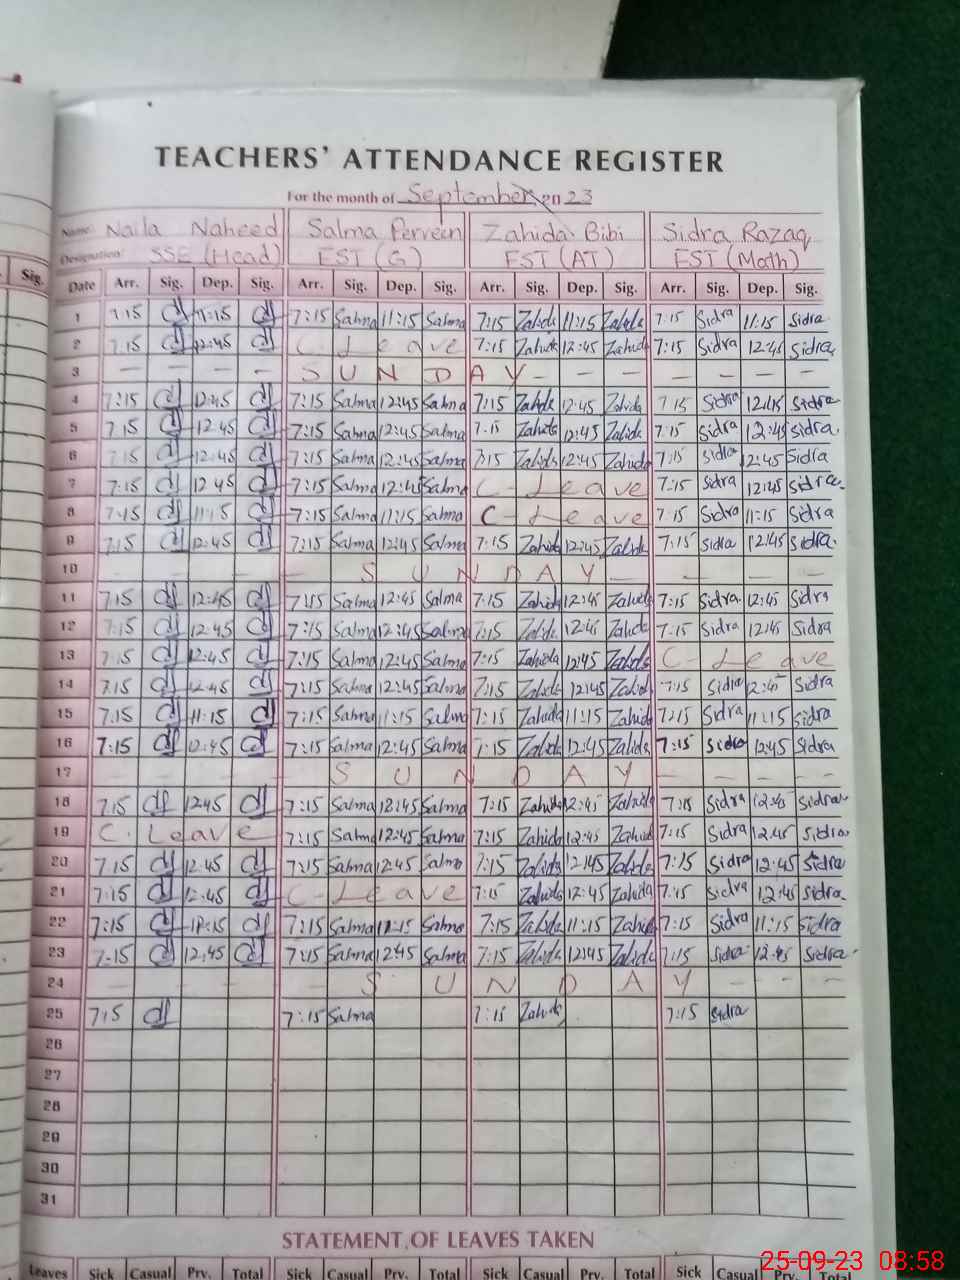 TEACHERS' ATTENDANCE REGISTER
For the month of September 2023
Name: Naila Naheed Salma Perveen Zahida Bibi Sidra Razaq
Designation: SSE (Head) EST (G) EST (AT) EST (Math)
Sig. Date Arr. Sig. Dep. Sig. Arr. Sig. Dep. Sig. Arr. Sig. Dep. Sig. Arr. Sig. Dep. Sig.
1 7:15 11:15 7:15 Salma 11:15 Salma 7:15 Zahida 11:15 Zahida 7:15 Sidra 11:15 Sidra
2 7:15 12:45 C-Leave 7:15 Zahida 12:45 Zahida 7:15 Sidra 12:45 Sidra
3 — — — — S U N D A Y — — — — — — —
4 7:15 12:45 7:15 Salma 12:45 Salma 7:15 Zahida 12:45 Zahida 7:15 Sidra 12:45 Sidra
5 7:15 12:45 7:15 Salma 12:45 Salma 7:15 Zahida 12:45 Zahida 7:15 Sidra 12:45 Sidra
6 7:15 12:45 7:15 Salma 12:45 Salma 7:15 Zahida 12:45 Zahida 7:15 Sidra 12:45 Sidra
7 7:15 12:45 7:15 Salma 12:45 Salma C-Leave 7:15 Sidra 12:45 Sidra
8 7:15 11:15 7:15 Salma 11:15 Salma C-Leave 7:15 Sidra 11:15 Sidra
9 7:15 12:45 7:15 Salma 12:45 Salma 7:15 Zahida 12:45 Zahida 7:15 Sidra 12:45 Sidra
10 — — — — — S U N D A Y — — — — —
11 7:15 12:45 7:15 Salma 12:45 Salma 7:15 Zahida 12:45 Zahida 7:15 Sidra 12:45 Sidra
12 7:15 12:45 7:15 Salma 12:45 Salma 7:15 Zahida 12:45 Zahida 7:15 Sidra 12:45 Sidra
13 7:15 12:45 7:15 Salma 12:45 Salma 7:15 Zahida 12:45 Zahida C-Leave
14 7:15 12:45 7:15 Salma 12:45 Salma 7:15 Zahida 12:45 Zahida 7:15 Sidra 12:45 Sidra
15 7:15 11:15 7:15 Salma 11:15 Salma 7:15 Zahida 11:15 Zahida 7:15 Sidra 11:15 Sidra
16 7:15 12:45 7:15 Salma 12:45 Salma 7:15 Zahida 12:45 Zahida 7:15 Sidra 12:45 Sidra
17 — — — — — S U N D A Y — — — —
18 7:15 12:45 7:15 Salma 12:45 Salma 7:15 Zahida 12:45 Zahida 7:15 Sidra 12:45 Sidra
19 C. Leave 7:15 Salma 12:45 Salma 7:15 Zahida 12:45 Zahida 7:15 Sidra 12:45 Sidra
20 7:15 12:45 7:15 Salma 12:45 Salma 7:15 Zahida 12:45 Zahida 7:15 Sidra 12:45 Sidra
21 7:15 12:45 C-Leave 7:15 Zahida 12:45 Zahida 7:15 Sidra 12:45 Sidra
22 7:15 11:15 7:15 Salma 11:15 Salma 7:15 Zahida 11:15 Zahida 7:15 Sidra 11:15 Sidra
23 7:15 12:45 7:15 Salma 12:45 Salma 7:15 Zahida 12:45 Zahida 7:15 Sidra 12:45 Sidra
24 — — — — — S U N D A Y — — —
25 7:15 7:15 Salma 7:15 Zahida 7:15 Sidra
26
27
28
29
30
31
STATEMENT OF LEAVES TAKEN
Leaves Sick Casual Prv. Total Sick Casual Prv. Total Sick Casual Prv. Total Sick Casual Prv. Total
25-09-23 08:58